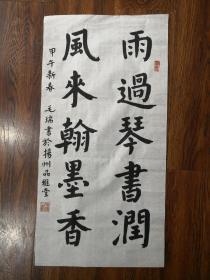 雨過琴書潤
風來翰墨香
甲午新春 毛瑞書於揚州品雅堂